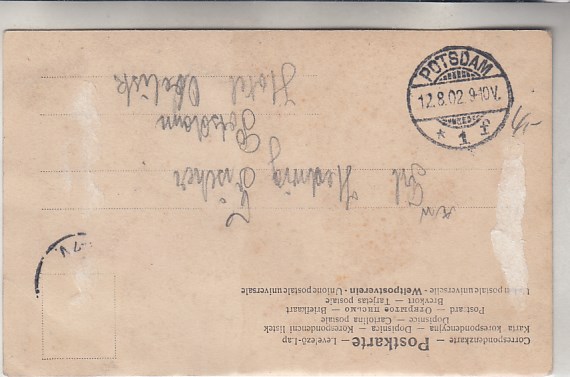 Correspondenzkarte — Levelező-Lap
Postkarte
Karta korespondencyjna — Dopisnica — Korespondenční lístek
Dopisnice — Cartolina postale
Postcard — Открытое письмо — Briefkaart
Brevkort — Tarjetas postale
Union postale universelle - Weltpostverein - Unione postale universale
An
Frl Hedwig Fischer
Potsdam
Hotel Obelisk
POTSDAM
12.8.02. 9-10V.
* 1 f
-7V.
4/-